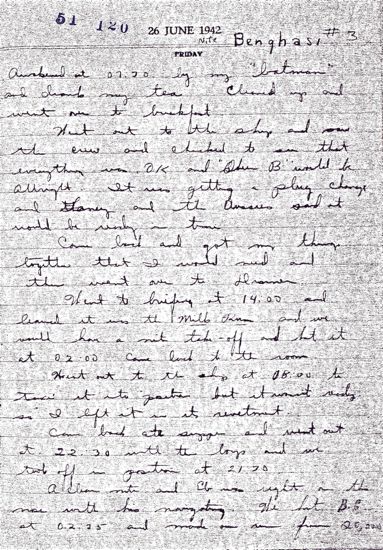 51 120
26 JUNE 1942
Nite Benghasi #3
FRIDAY
Awakened at 07.30 by my "batman"
and drank my tea. Cleaned up and
went over to breakfast.
Went out to the ship and saw
the crew and checked to see that
everything was OK and "Queen B" would be
allright. It was getting a plug change
and and the said it
would be ready in time.
Came back and got my things
together that I would need and
then went over to dinner.
Went to briefing at 14.00 and
learned it was the Milk Run and we
would have a nite take-off and hit it
at 02.00 Came back to the room
Went out to the ship at 08.00 to
taxi it into position but it wasn't ready
so I left it in its revetment.
Came back ate supper and went out
at 22.30 with the boys and we
took off in position at 21.20
A clear nite and was right on the
nose with his navigating. We hit B.G.
at 02.25 and made our run from 20,000